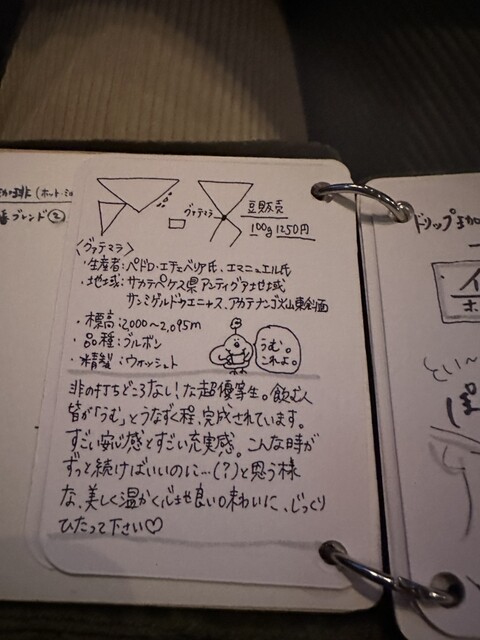 ブレンド②
豆販売
グァテマラ
100g 1250円
〈グァテマラ〉
・生産者:ペドロ・エチェベリア氏、エマニュエル氏
・地域:サカテペケス県アンティグア地域
サンミゲルドゥエニャス、アカテナンゴ火山東斜面
・標高:2,000〜2,095m
・品種:ブルボン
・精製:ウォッシュト
うむ。
これよ。
非の打ちどころなし!な超優等生。飲む人
皆が「うむ」とうなずく程、完成されています。
すごい安心感とすごい充実感。こんな時が
ずっと続けばいいのに…(?)と思う様
な、美しく温かく心地良い味わいに、じっくり
ひたって下さい♡
ドリップ